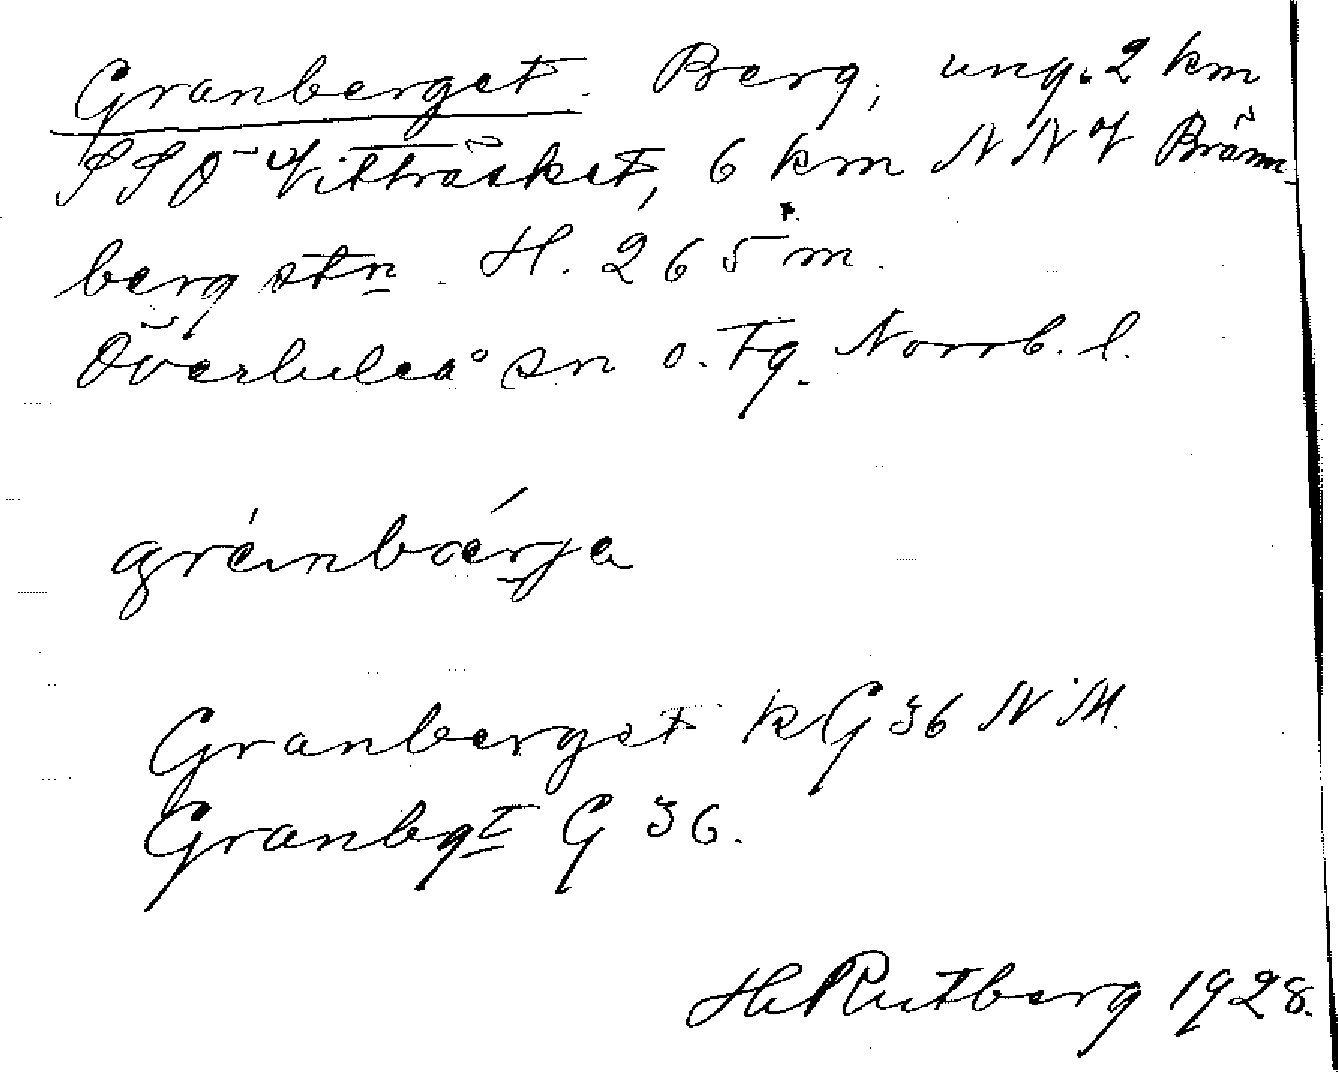 Granberget. Berg, ung. 2 km
SSO Vitträsket, 6 km NNV Bränn-
berg stn. H. 265 m.
Överluleå sn o. tg. Norrb. l.
gránbærja
Granberget kG 36 N M.
Granbgt G 36.
H. Rutberg 1928.